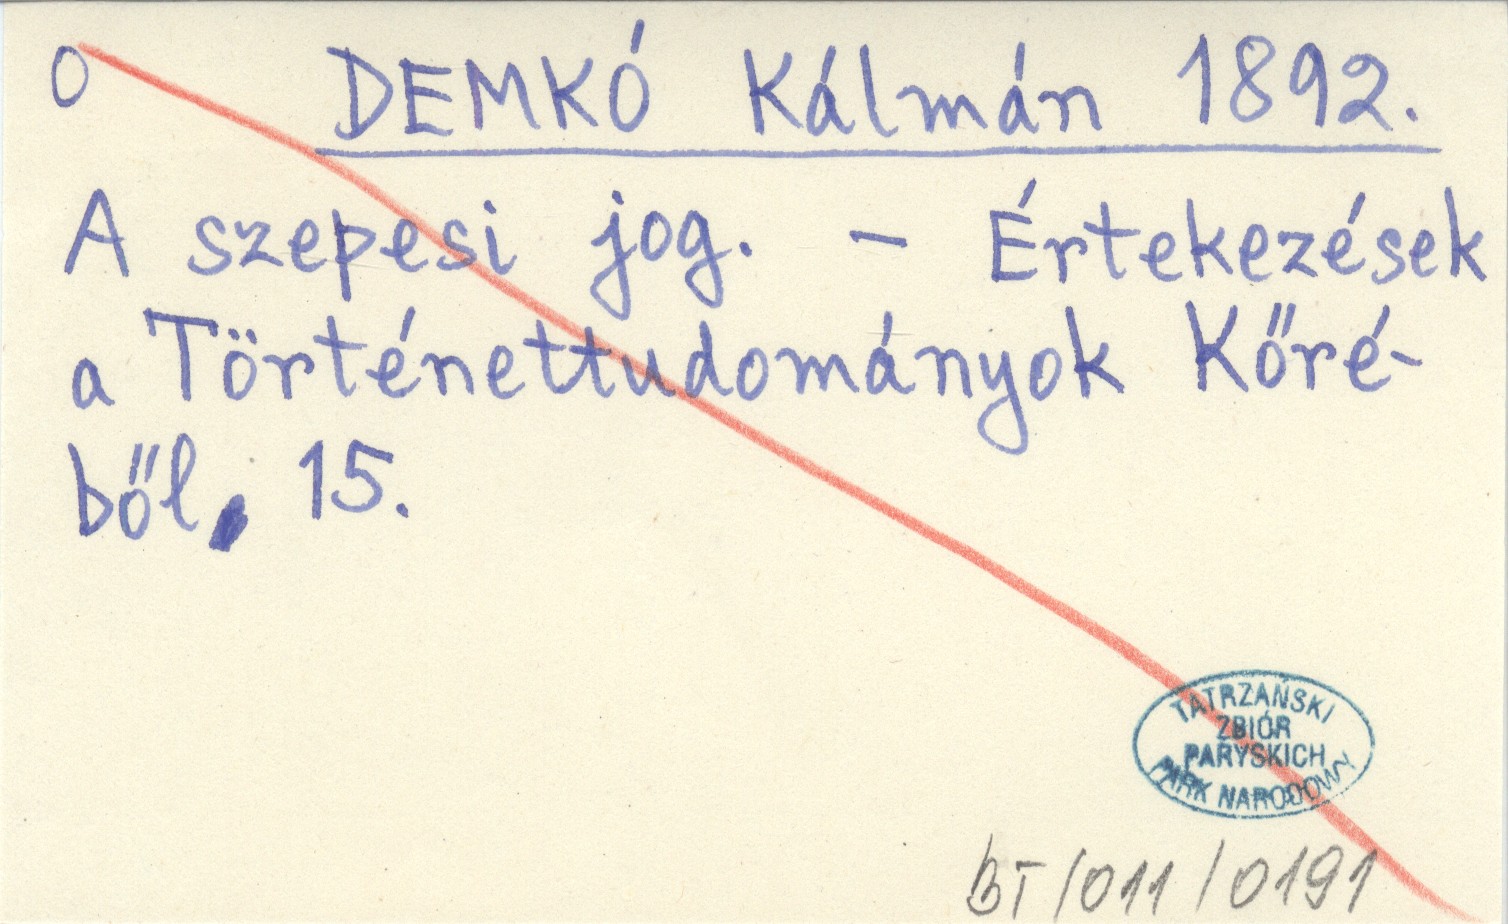 0 DEMKÓ Kálmán 1892.
A szepesi jog. - Értekezések
a Történettudományok Kőré-
ből, 15.
TATRZAŃSKI
ZBIÓR
PARYSKICH
PARK NARODOWY
BT/011/0191